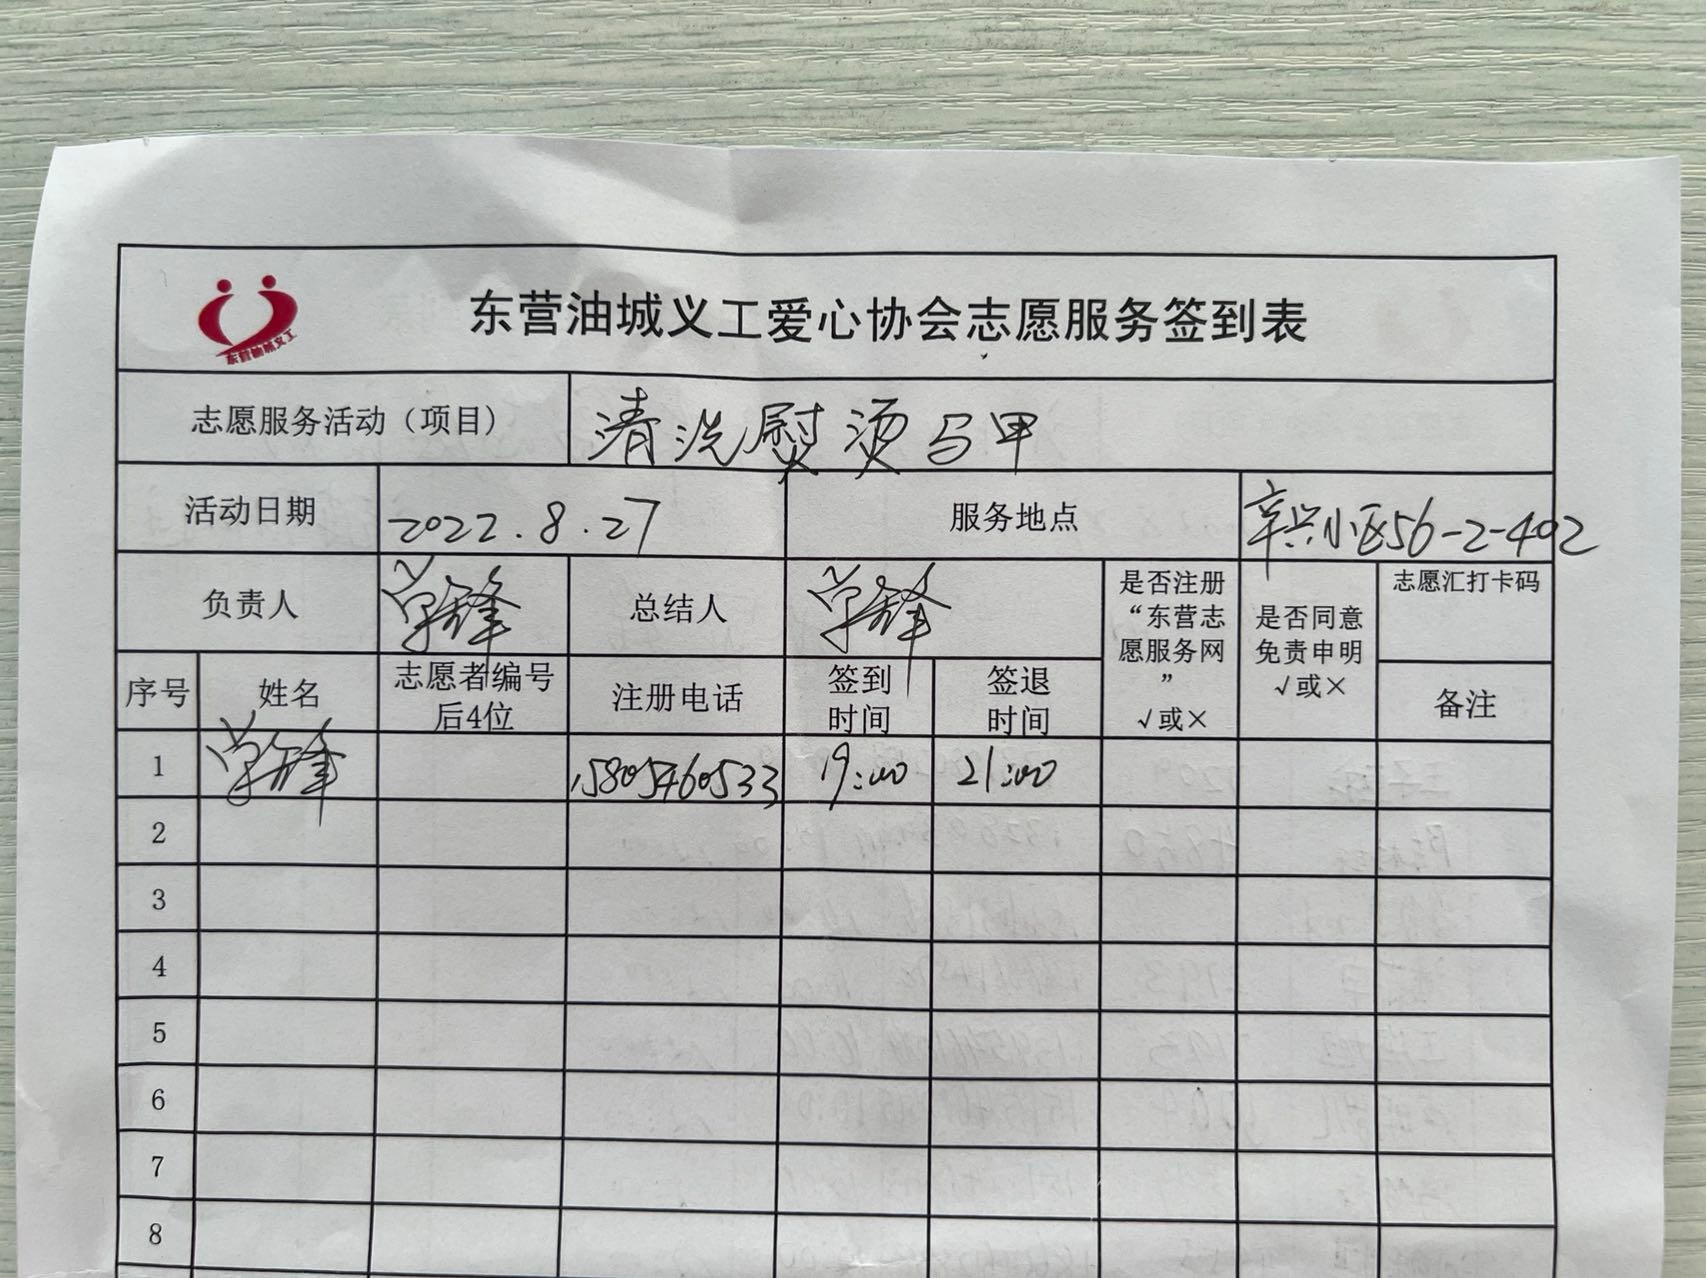 东营油城义工
东营油城义工爱心协会志愿服务签到表
志愿服务活动（项目） 清洗熨烫马甲
活动日期 2022.8.27 服务地点 辛兴小区56-2-402
负责人 学锋 总结人 学锋
是否注册
“东营志
愿服务网
”
√或×
是否同意
免责申明
√或×
志愿汇打卡码
序号 姓名
志愿者编号
后4位
注册电话
签到
时间
签退
时间
备注
1 学锋 15805460533 19:00 21:00
2
3
4
5
6
7
8